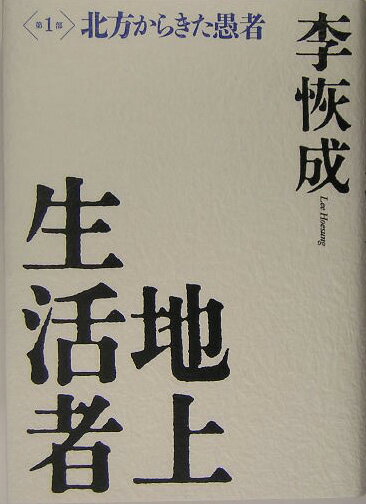 〈第1部〉北方からきた愚者
李恢成
Lee Hoesung
地上
生活者